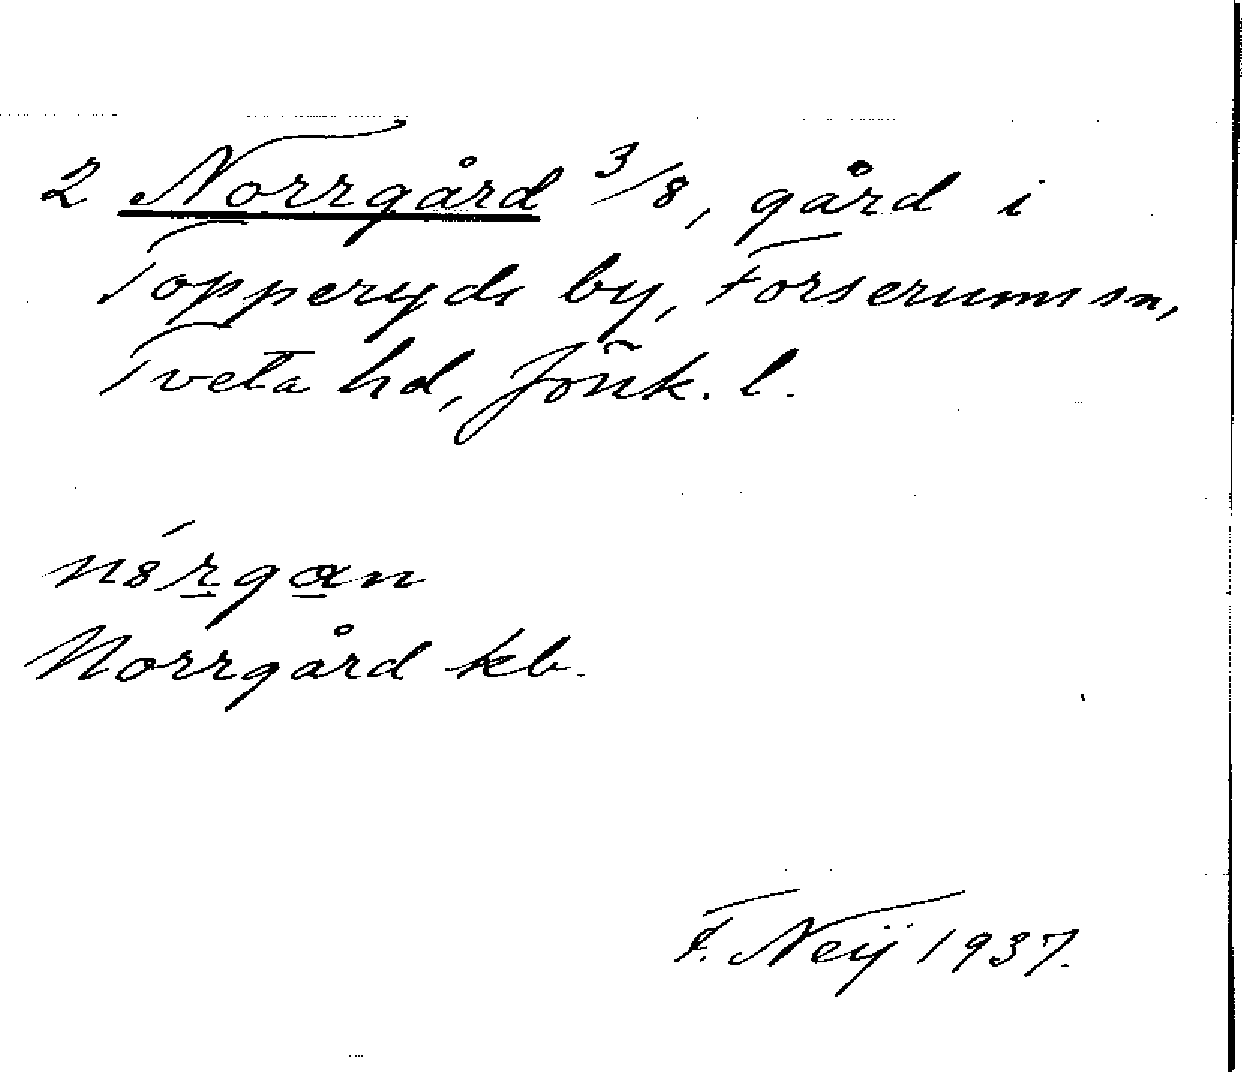 2 Norrgård 3/8, gård i
Topperyds by, Forserums sn,
Tveta hd, Jönk. l.
Norrgård kb.
F. Neij 1937.